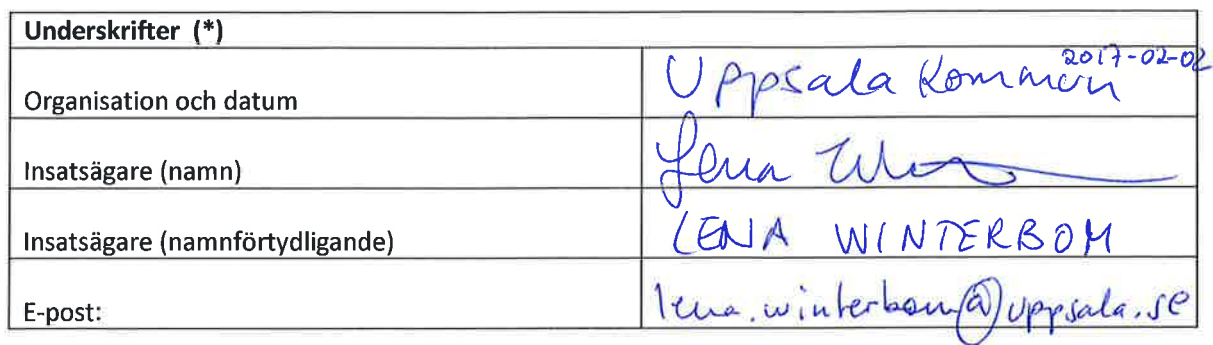 Underskrifter (*)
Organisation och datum Uppsala Kommun 2017-02-02
Insatsägare (namn) Lena
Insatsägare (namnförtydligande) LENA WINTERBOM
E-post: lena.winterbom@uppsala.se